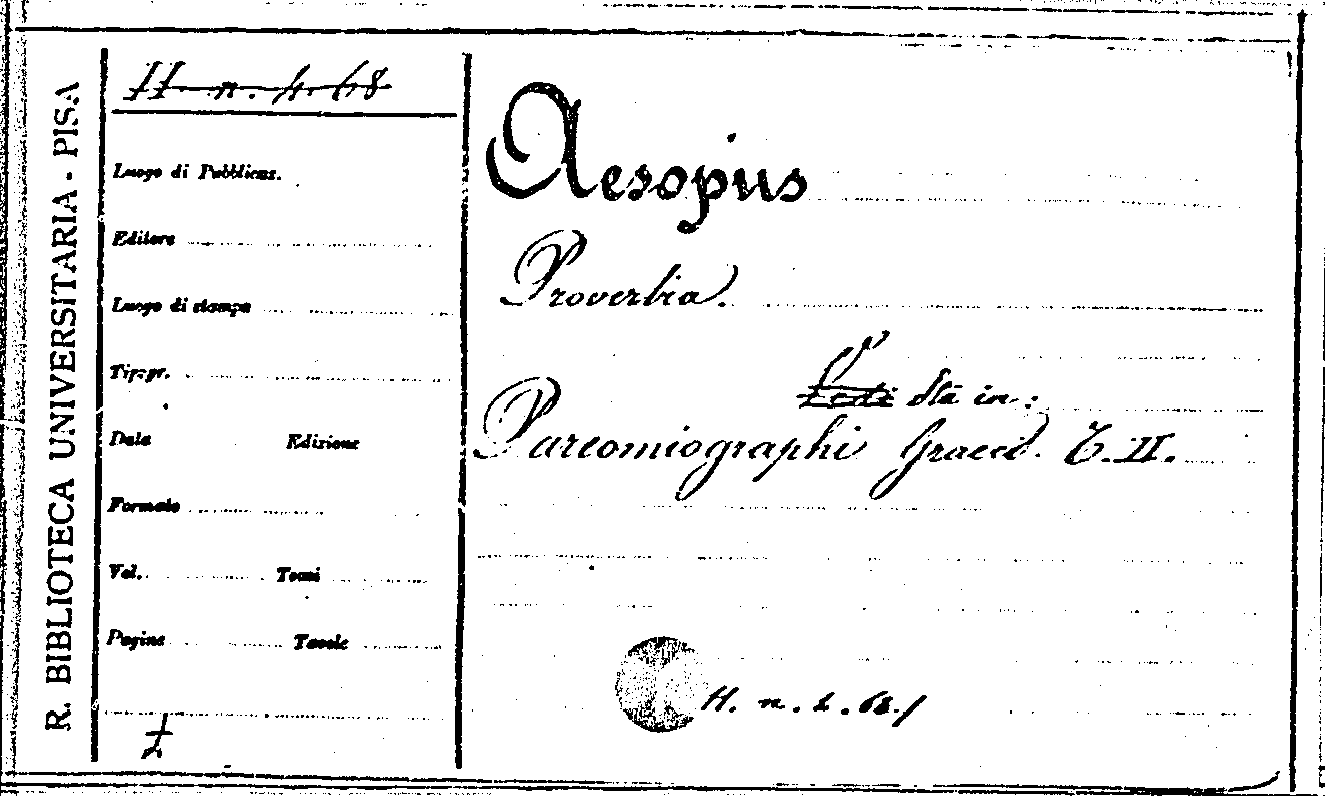 R. BIBLIOTECA UNIVERSITARIA - PISA
H. n. 4. 68
Luogo di Pubblicaz.
Editore
Luogo di stampa
Tipogr.
Data Edizione
Formato
Vol. Tomi
Pagine Tavole
Aesopus
Proverbia.
Vedi Sta in:
Paroemiographi Graeci. T. II.
H. n.